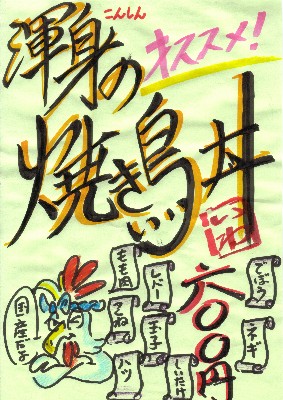 こんしん
渾身の
オススメ!
焼き鳥丼
六〇〇円
ごぼう
ネギ
レバー
玉子
しいたけ
もも肉
ハツ
国産だよ